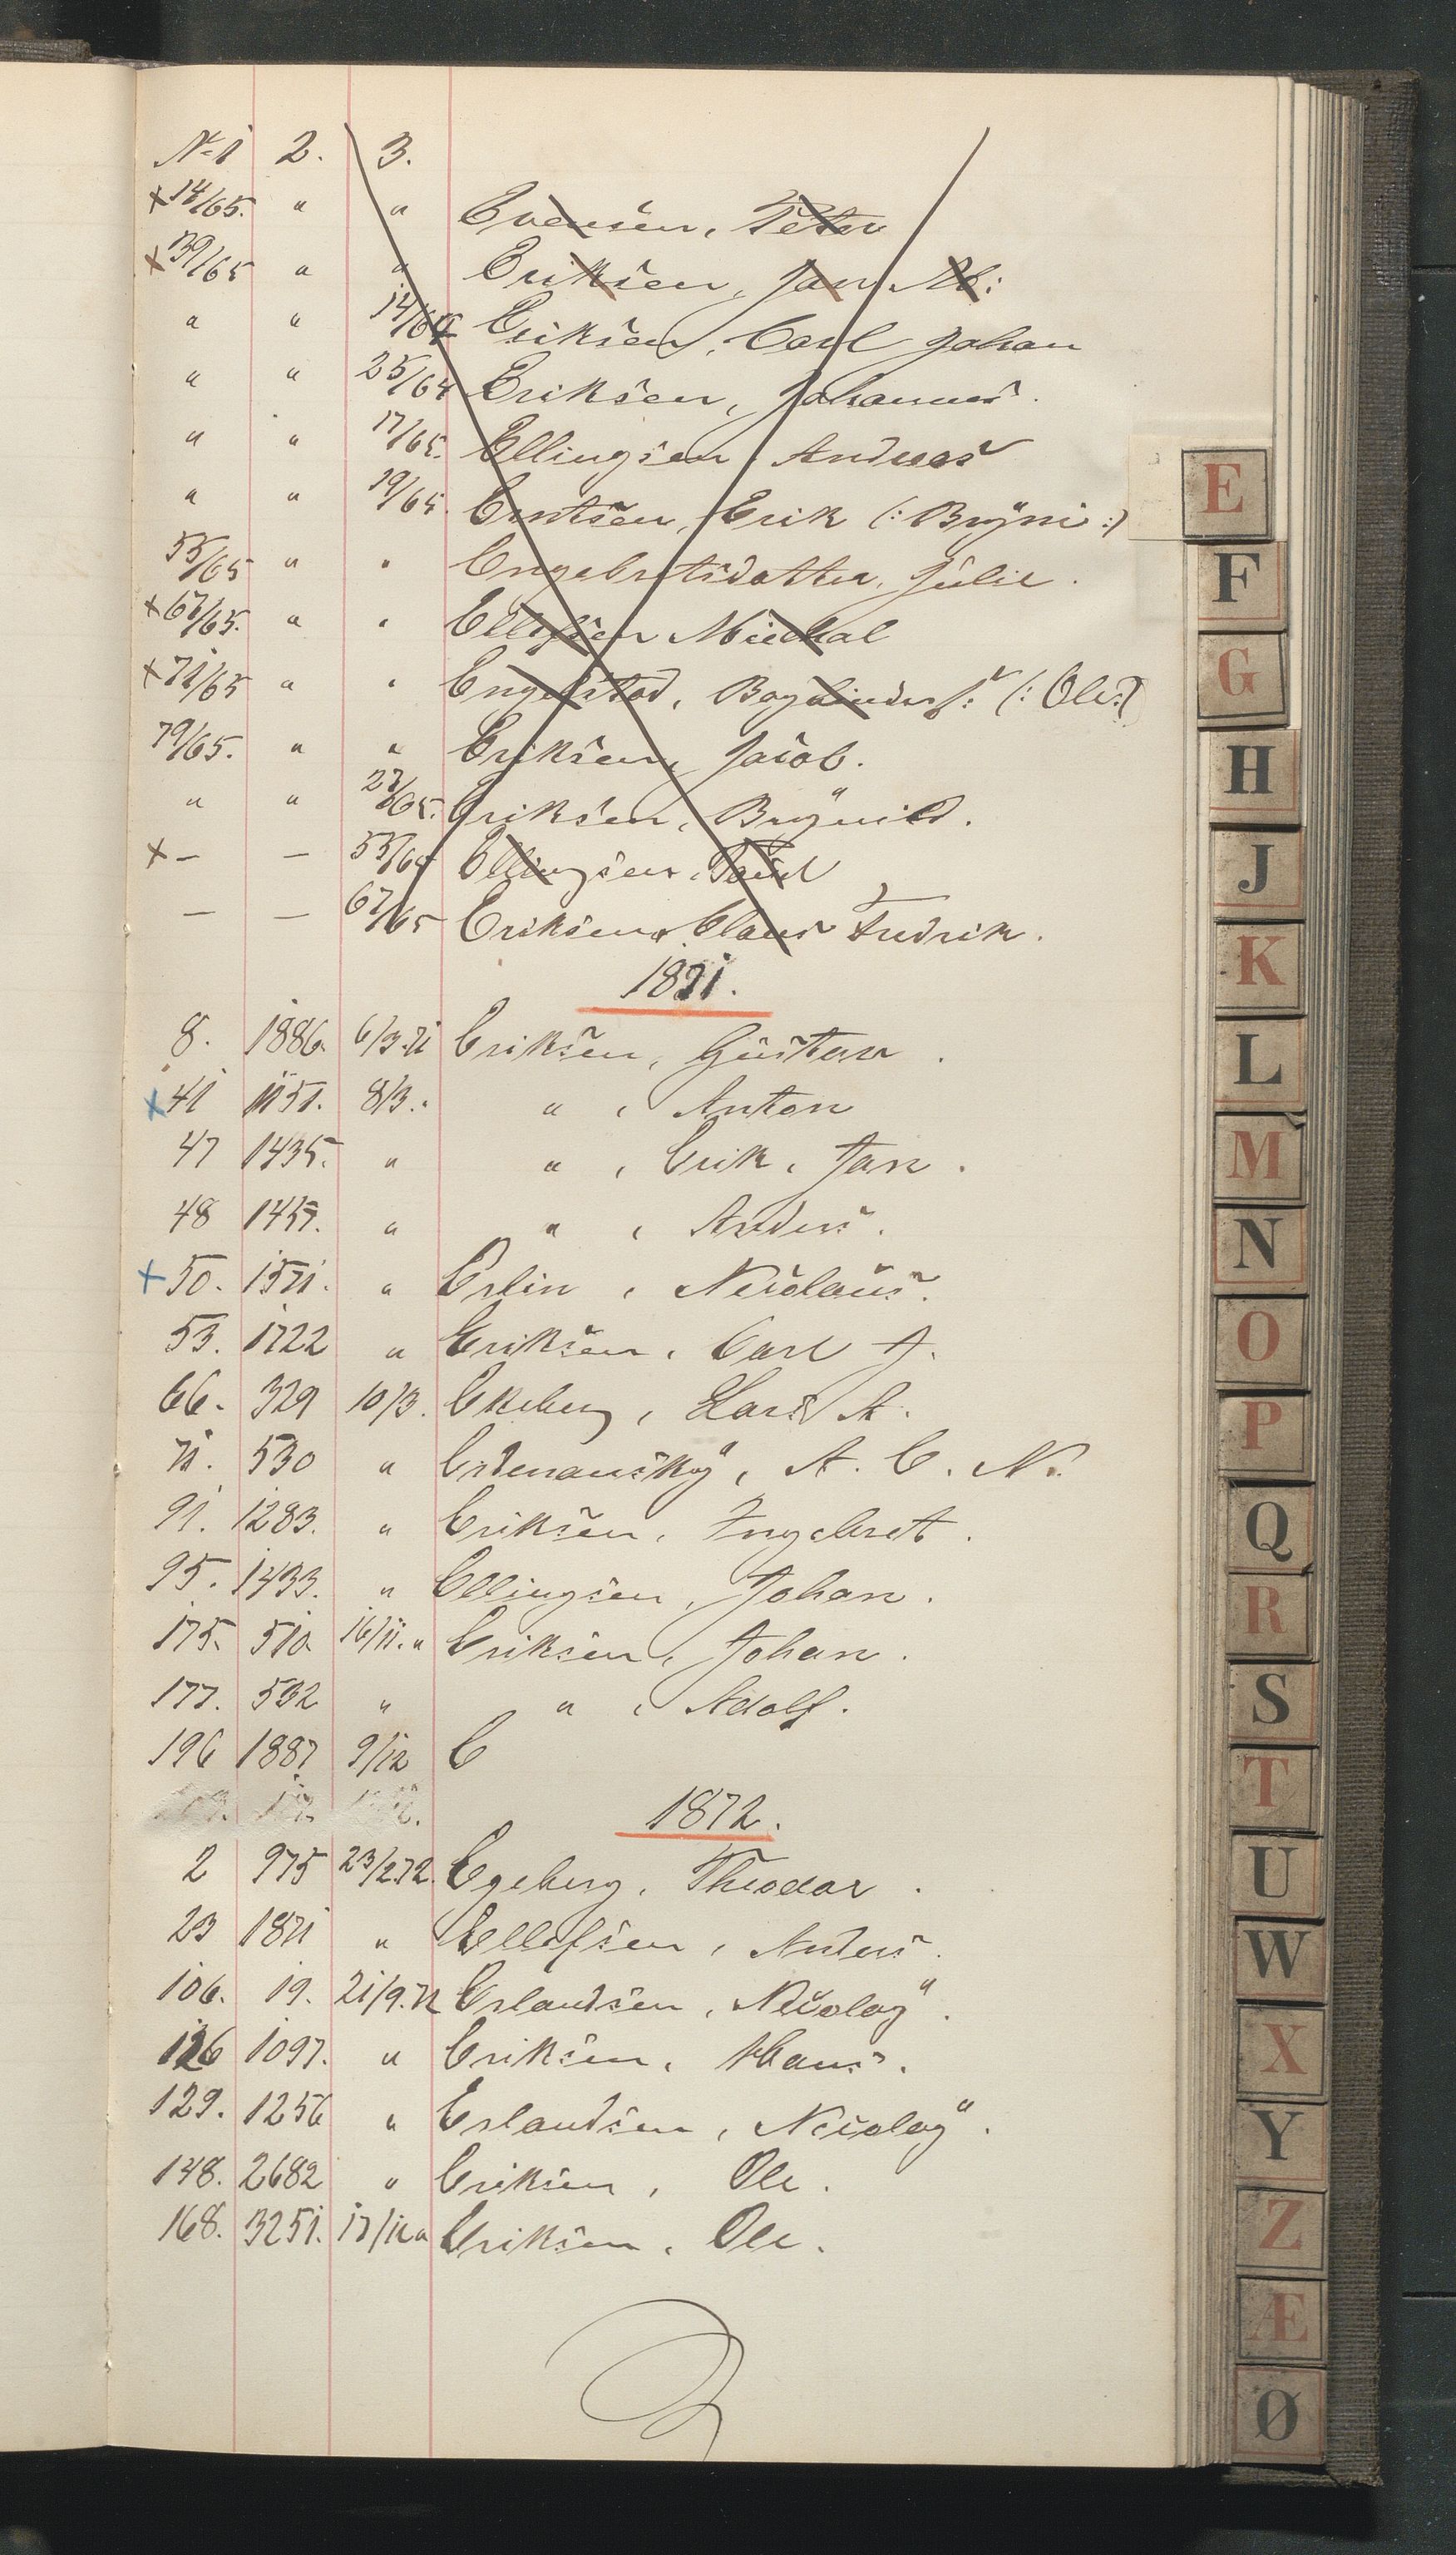 No 1 2. 3.
x 14/65. " " Evensen, Peter
x 39/65 " " Eriksen, Jan Ab:
" " 14/64 Eriksen, Carl Johan
" " 25/64 Eriksen, Johannes.
" " 17/65. Ellingsen, Andreas
" " 19/65 Erik (: Bryni :)
55/65 " " Engebretsdatter, Julie.
x 67/65. " " Ellefsen Michal
x 71/65 " " Engelstad, (: Ole :)
79/65. " " Eriksen, Jacob.
" " 23/65. Eriksen, Brynild.
x - - 55/65 Ellingsen, Poul
- - 67/65 Eriksen, Claus Fredrik.
1871.
8. 1886. 6/3.71 Eriksen, Gustav.
x 41 1151. 8/3. " , Anton
47 1435. " " , Erik, Jan.
48 1457. " " , Anders.
x 50. 1571. " Erlin, Nicolaus.
53. 1722 " Eriksen, Carl J.
66. 329 10/3. Ekeberg, Lars A.
71. 530 " A. C. N.
91. 1283. " Eriksen, Ingebret.
95. 1433. " Ellingsen, Johan.
175. 510. 16/11. " Eriksen, Johan.
177. 532 " " , Adolf.
196 1887. 9/12 E
1872.
2 975 23/2.72. Egeberg, Theodor.
23 1871 " Ellefsen, Anders.
106. 19. 21/9.72 Erlandsen, Nicolay.
126 1097. " Eriksen, Hans.
129. 1256 " Erlandsen, Nicolay.
148. 2682 " Eriksen, Ole.
168. 3251. 17/12 " Eriksen, Ole.
E
F
G
H
J
K
L
M
N
O
P
Q
R
S
T
U
W
X
Y
Z
Æ
Ø